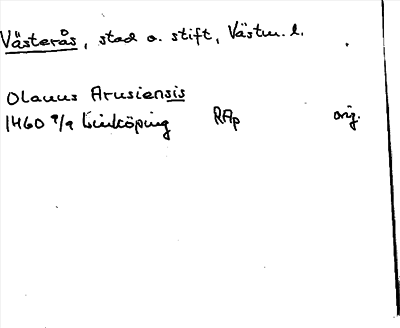 Västerås, stad o. stift, Västm. l.
Olauus Arusiensis
1460 9/9 Linköping RAp orig.